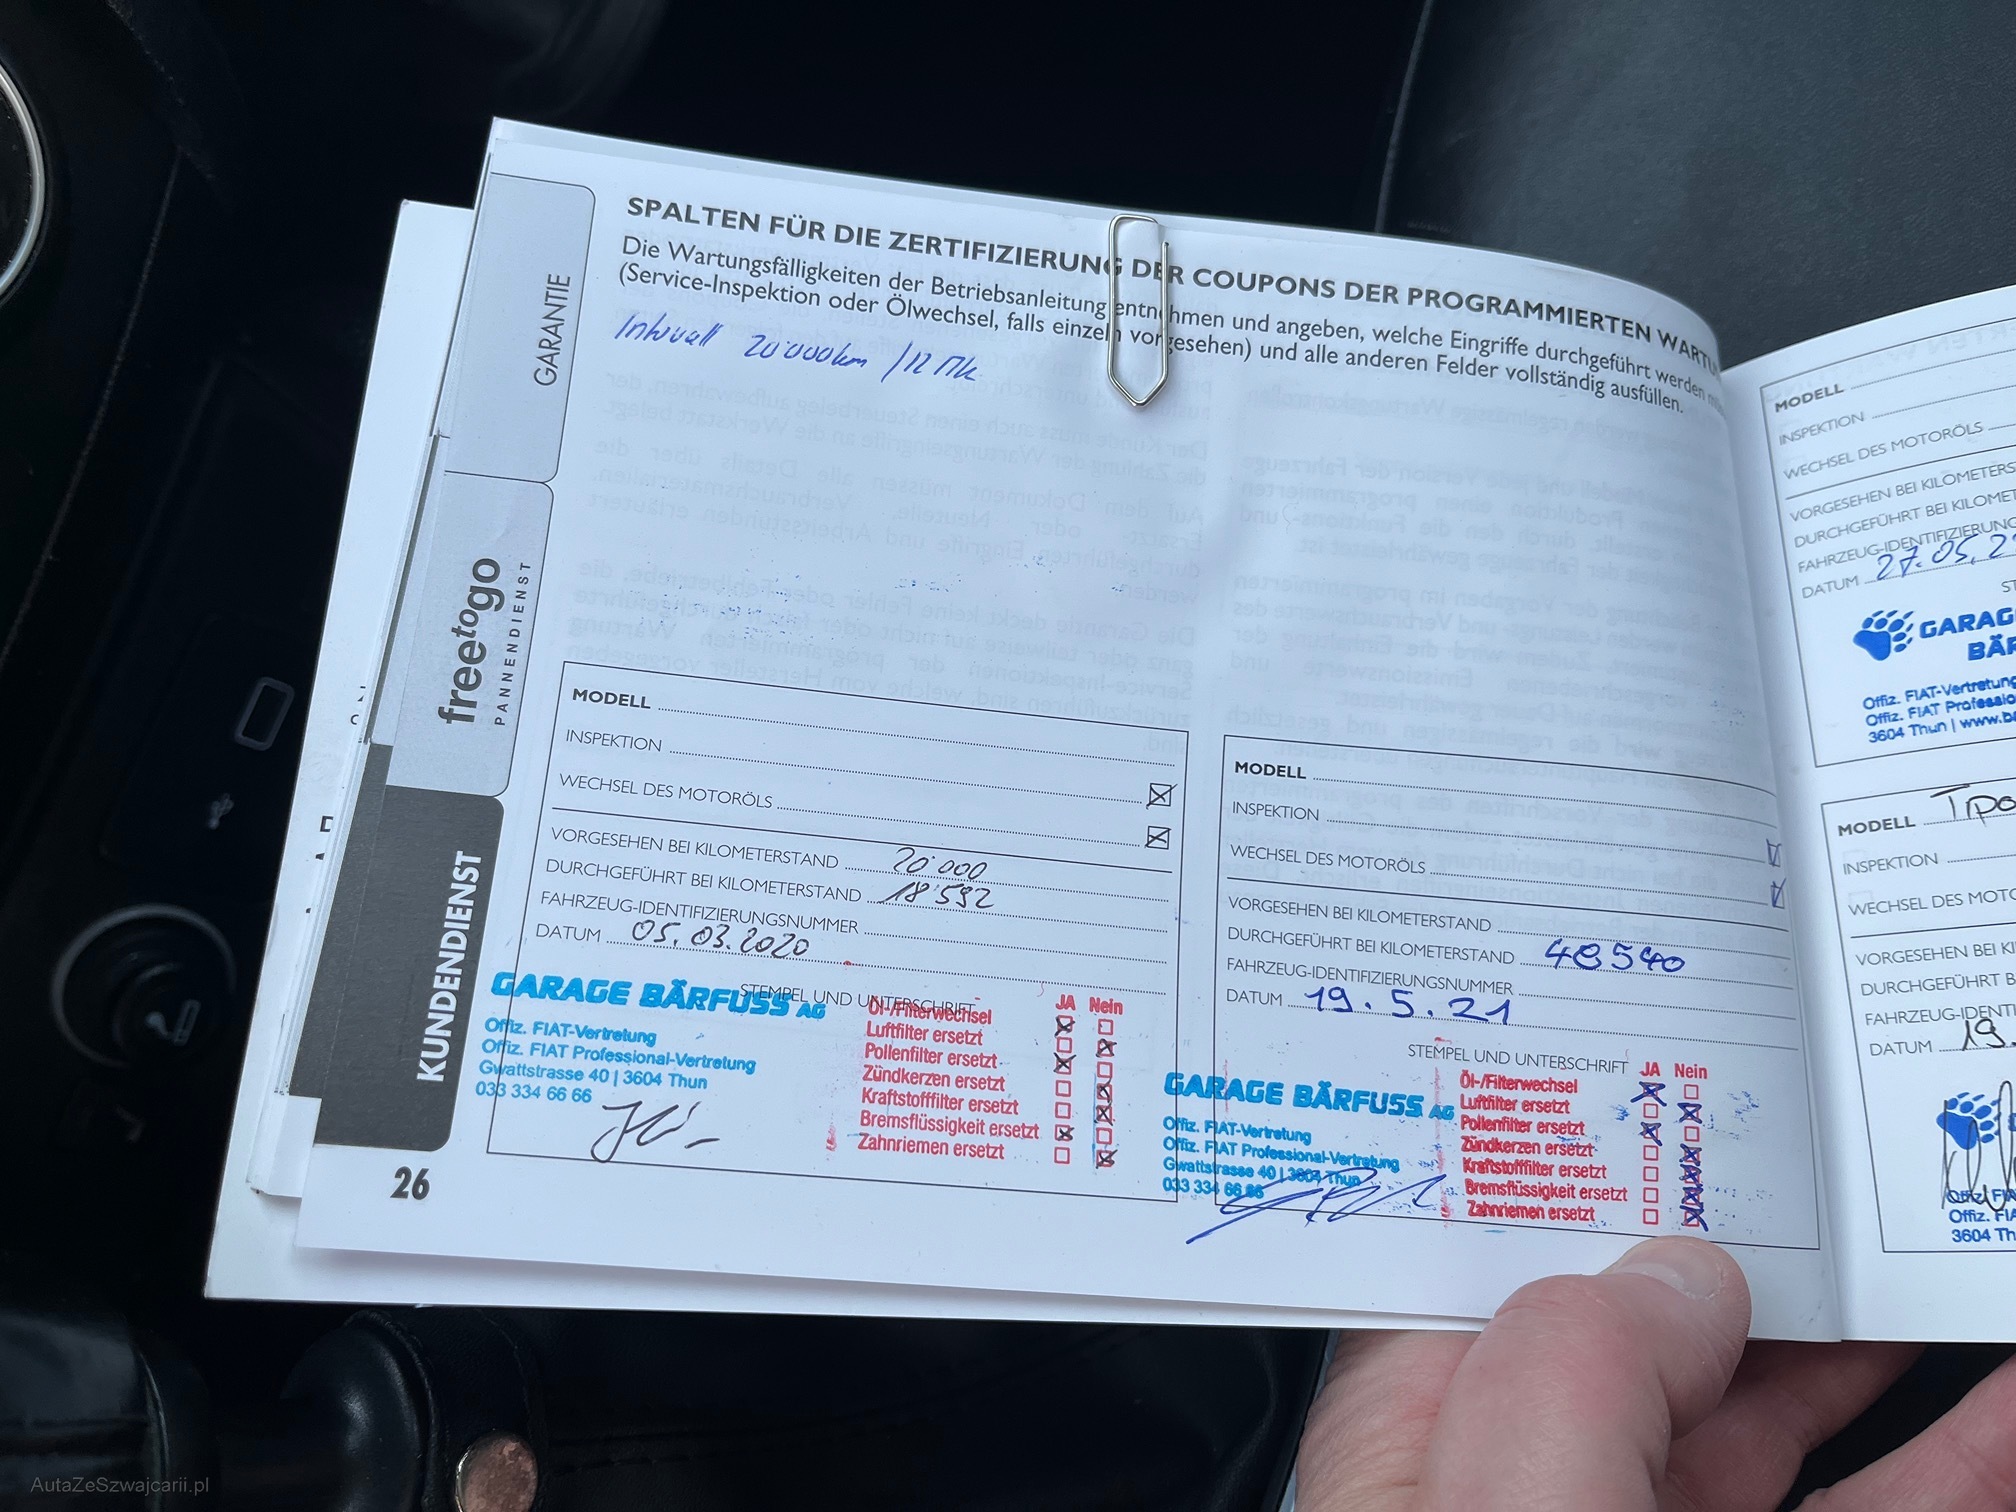 SPALTEN FÜR DIE ZERTIFIZIERUNG DER COUPONS DER PROGRAMMIERTEN
Die Wartungsfälligkeiten der Betriebsanleitung entnehmen und angeben, welche Eingriffe durchgeführt werden
(Service-Inspektion oder Ölwechsel, falls einzeln vorgesehen) und alle anderen Felder vollständig ausfüllen.
Intervall 20'000km / 12 Mk
GARANTIE
freetogo
PANNENDIENST
KUNDENDIENST
26
MODELL
INSPEKTION
WECHSEL DES MOTORÖLS
VORGESEHEN BEI KILOMETERSTAND 20'000
DURCHGEFÜHRT BEI KILOMETERSTAND 18'592
FAHRZEUG-IDENTIFIZIERUNGSNUMMER
DATUM 05.03.2020
STEMPEL UND UNTERSCHRIFT
GARAGE BÄRFUSS AG
Offiz. FIAT-Vertretung
Offiz. FIAT Professional-Vertretung
Gwattstrasse 40 | 3604 Thun
033 334 66 66
JA Nein
Öl-/Filterwechsel
Luftfilter ersetzt
Pollenfilter ersetzt
Zündkerzen ersetzt
Kraftstofffilter ersetzt
Bremsflüssigkeit ersetzt
Zahnriemen ersetzt
MODELL
INSPEKTION
WECHSEL DES MOTORÖLS
VORGESEHEN BEI KILOMETERSTAND
DURCHGEFÜHRT BEI KILOMETERSTAND 48540
FAHRZEUG-IDENTIFIZIERUNGSNUMMER
DATUM 19.5.21
STEMPEL UND UNTERSCHRIFT
GARAGE BÄRFUSS AG
Offiz. FIAT-Vertretung
Offiz. FIAT Professional-Vertretung
Gwattstrasse 40 | 3604 Thun
033 334 66 66
JA Nein
Öl-/Filterwechsel
Luftfilter ersetzt
Pollenfilter ersetzt
Zündkerzen ersetzt
Kraftstofffilter ersetzt
Bremsflüssigkeit ersetzt
Zahnriemen ersetzt
MODELL
INSPEKTION
WECHSEL DES MOTORÖLS
VORGESEHEN BEI
DURCHGEFÜHRT BEI
FAHRZEUG-IDENTIFIZIERUNG
DATUM 27.05.2
GARAG
BÄR
Offiz. FIAT-Vertretung
Offiz. FIAT Professio
3604 Thun | www.b
MODELL Tipo
INSPEKTION
WECHSEL DES MOTO
VORGESEHEN BEI KI
DURCHGEFÜHRT B
FAHRZEUG-IDENTI
DATUM 19.
Offiz. FIA
Offiz. FIA
3604 Th
AutaZeSzwajcarii.pl